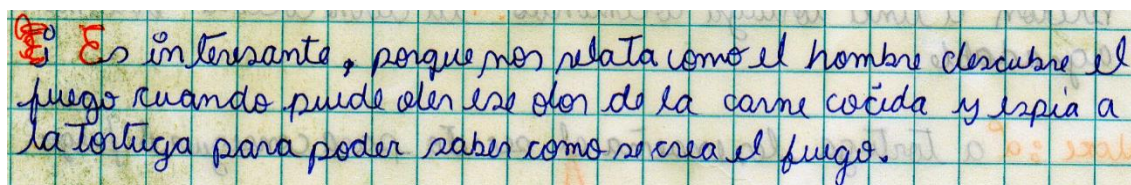 Es interesante, porque nos relata como el hombre descubre el
fuego cuando puede oler ese olor de la carne cocida y espia a
la tortuga para poder saber como se crea el fuego.